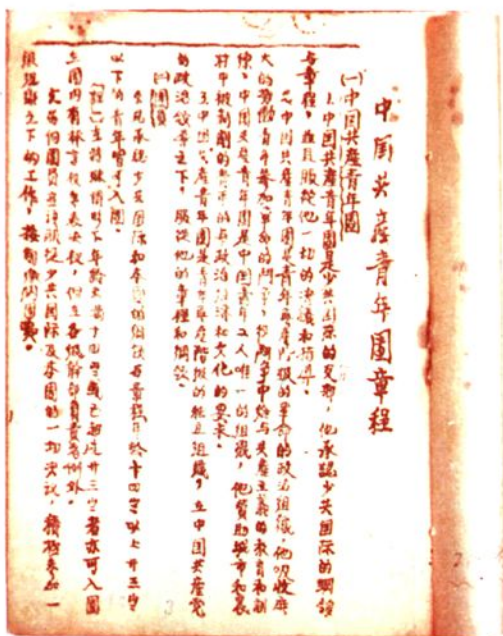 中国共産青年團章程
(一)中国共産青年團
1.中国共産青年團是少共国际的支部，他承認少共国际的綱領
与章程，並且服從他一切的決議和指導。
2.中国共産青年團是青年無産階級的革命的政治組織，他吸收廣
大的勞働青年参加革命的鬥争，在鬥争中給与共産主義的教育和訓
練。中国共産青年團是中国青年工人唯一的組織，他贊助城市和農
村中被剥削的青年的政治經濟和文化的要求。
3.中国共産青年團是青年無産階級的組織，在中国共産党
的政治領導之下，服從他的章程和綱領。
(二)團員
4.凡承認少共国际和本團的綱領与章程年齡十四岁以上廿三岁
以下的青年皆可入團。
(註)在特殊情形下年齡未滿十四岁或已超过廿三岁者亦可入團
在團内有發言權無表决權，但在各級幹部負責者例外。
5.每個團員應該服從少共国际及本團的一切决議，積極参加一
組織之下的工作，按期缴纳團費。